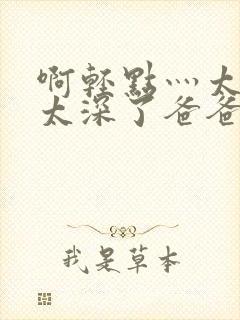 啊輕點灬大
太深了爸爸
我是草本